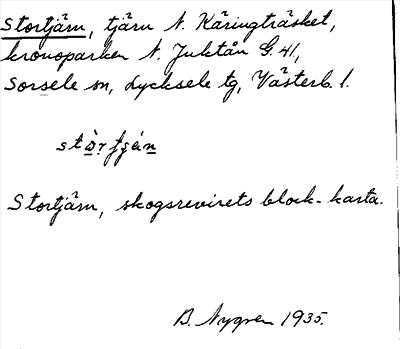 Stortjärn, tjärn N. Käringträsket,
kronoparken N. Juktån G. 41,
Sorsele sn, Lycksele tg, Västerb. l.
Stortjärn, skogsrevirets block-karta.
B. Nygren 1935.